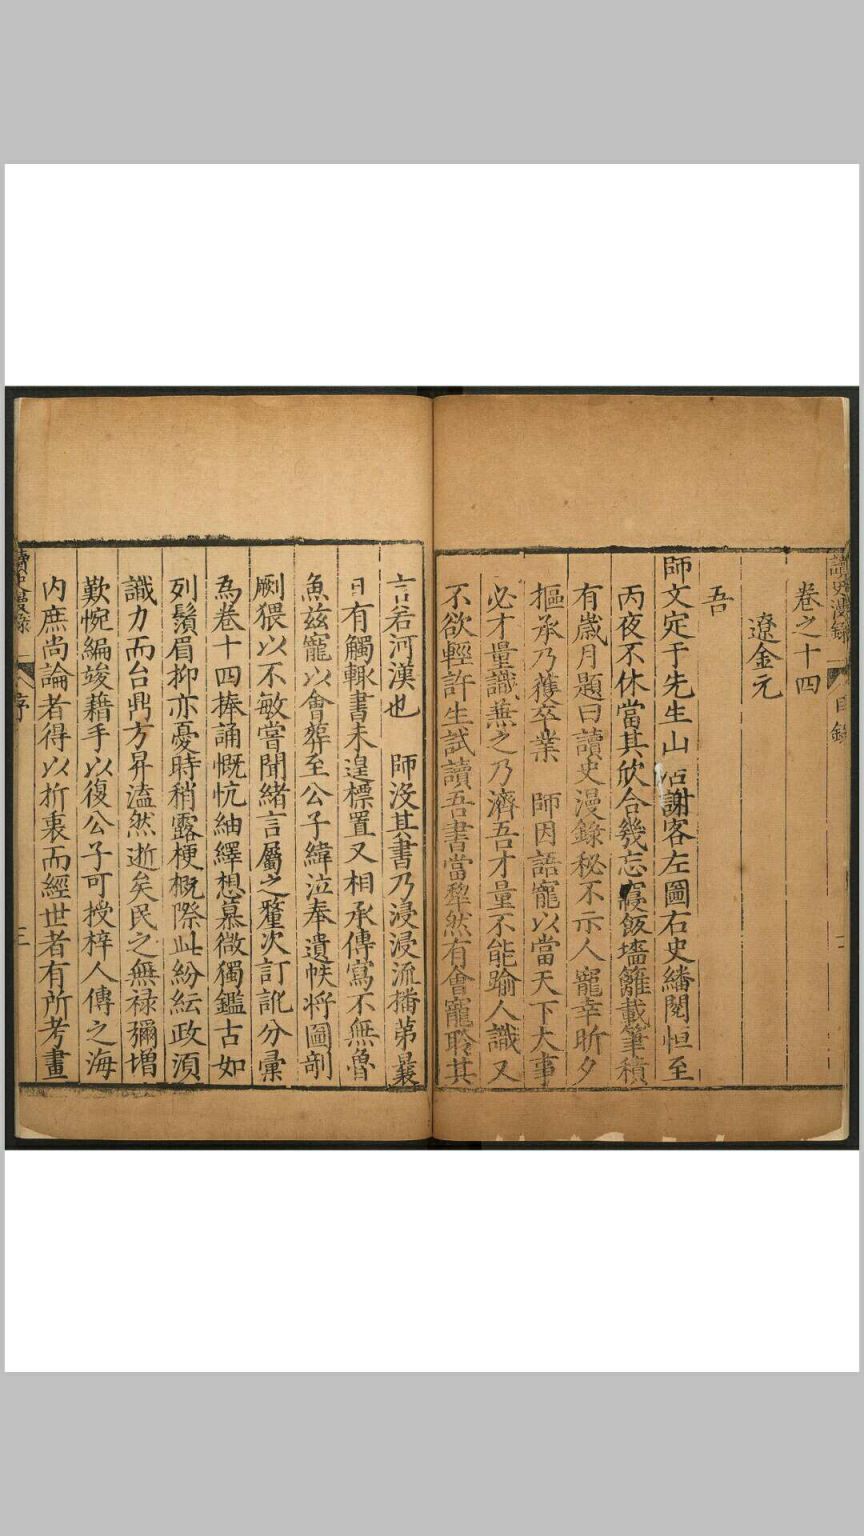 卷之十四
遼金元
吾
師文定于先生山居謝客左圖右史繙閱恒至
丙夜不休當其欣合幾忘寢飯墻籬載筆積
有歲月題曰讀史漫錄秘不示人寵幸昕夕
摳承乃獲卒業　師因語寵以當天下大事
必才量識兼之乃濟吾才量不能踰人識又
不欲輕許生試讀吾書當犂然有會寵聆其
言若河漢也　師沒其書乃浸浸流播第曩
日有觸輒書未遑標置又相承傳寫不無魯
魚茲寵以會葬至公子緯泣奉遺帙將圖剞
劂猥以不敏嘗聞緒言屬之釐次訂訛分彙
爲卷十四捧誦慨忼紬繹想慕微獨鑑古如
列鬚眉抑亦憂時稍露梗概際此紛紜政湏
識力而台鼎方昇溘然逝矣民之無祿彌增
歎惋編竣藉手以復公子可授梓人傳之海
内庶尚論者得以折衷而經世者有所考畫
讀史漫錄
目錄
序
三